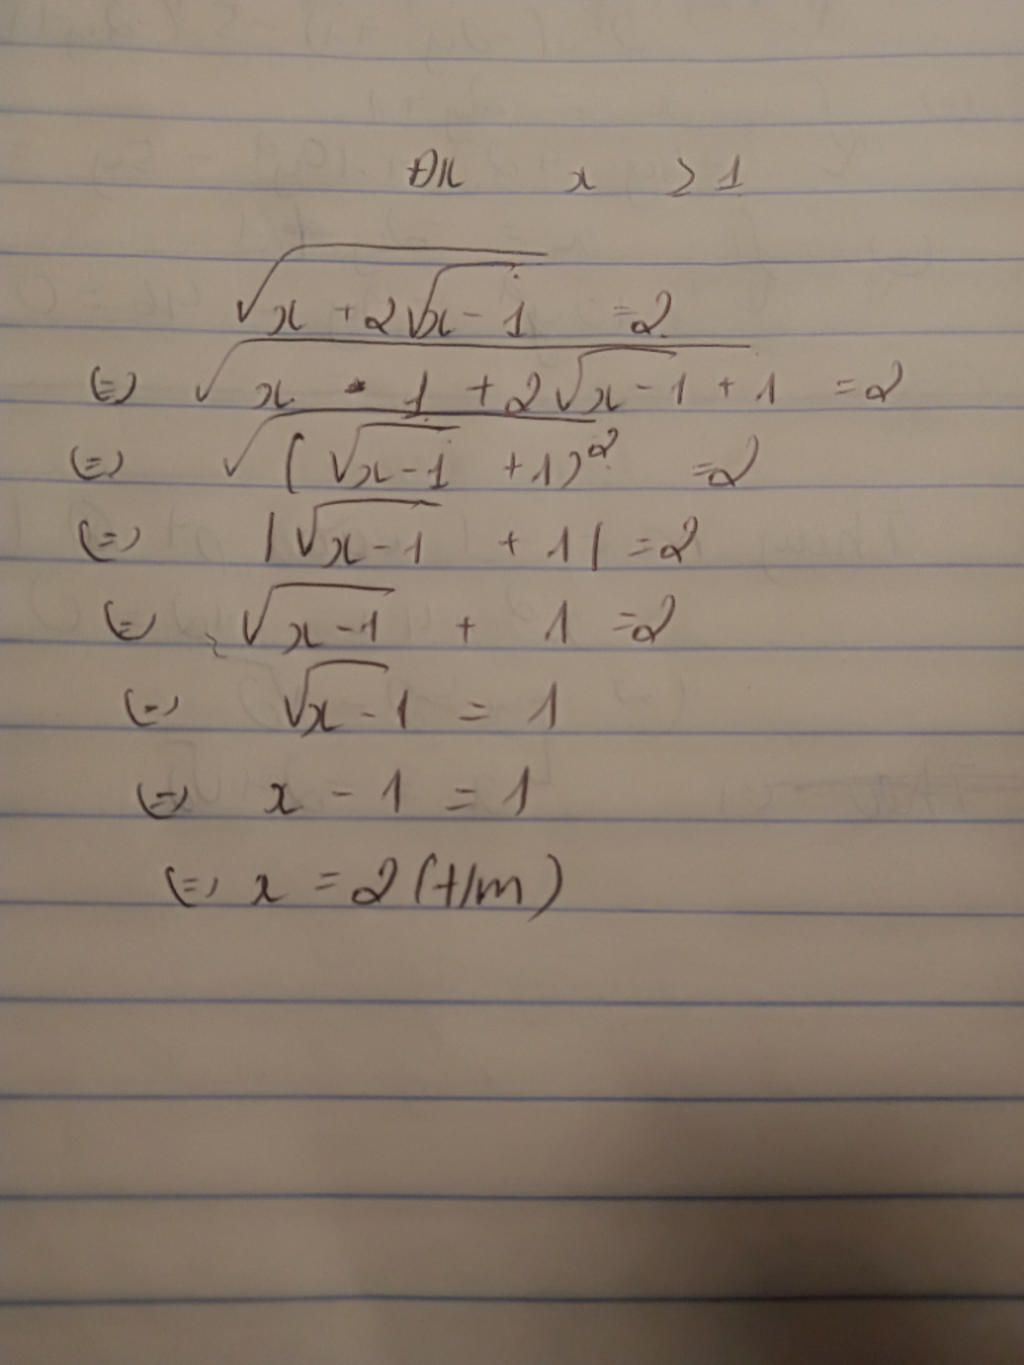 ĐK x ≥ 1
√(x + 2√(x - 1)) = 2
(=) √(x - 1 + 2√(x - 1) + 1) = 2
(=) √((√(x - 1) + 1)²) = 2
(=) |√(x - 1) + 1| = 2
(=) √(x - 1) + 1 = 2
(=) √(x - 1) = 1
(=) x - 1 = 1
(=) x = 2 (t/m)